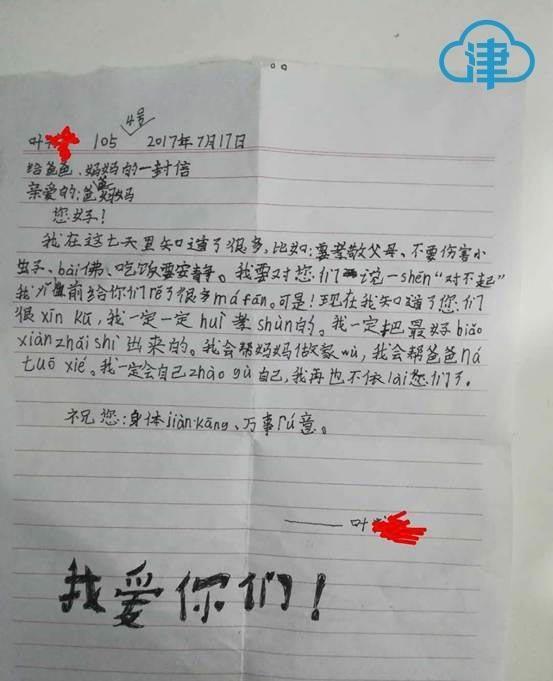 津
4号
叶 105 2017年7月17日
给爸爸、妈妈的一封信
亲爱的:爸爸妈妈
您好!
我在这七天里知道了很多,比如:要孝敬父母、不要伤害小
虫子、bài佛、吃饭要安静。我要对您们说一shēn"对不起"
我以前给你们 了很多má fán。可是!现在我知道了您们
很xīn kǔ,我一定一定huì孝shùn的。我一定把最好biǎo
xiàn zhǎi shì出来的。我会帮妈妈做家wù,我会帮爸爸ná
tuō xié。我一定会自己zhào gù自己,我再也不依lài您们了。
祝您:身体jiàn·kāng、万事rú意。
——叶
我爱你们!